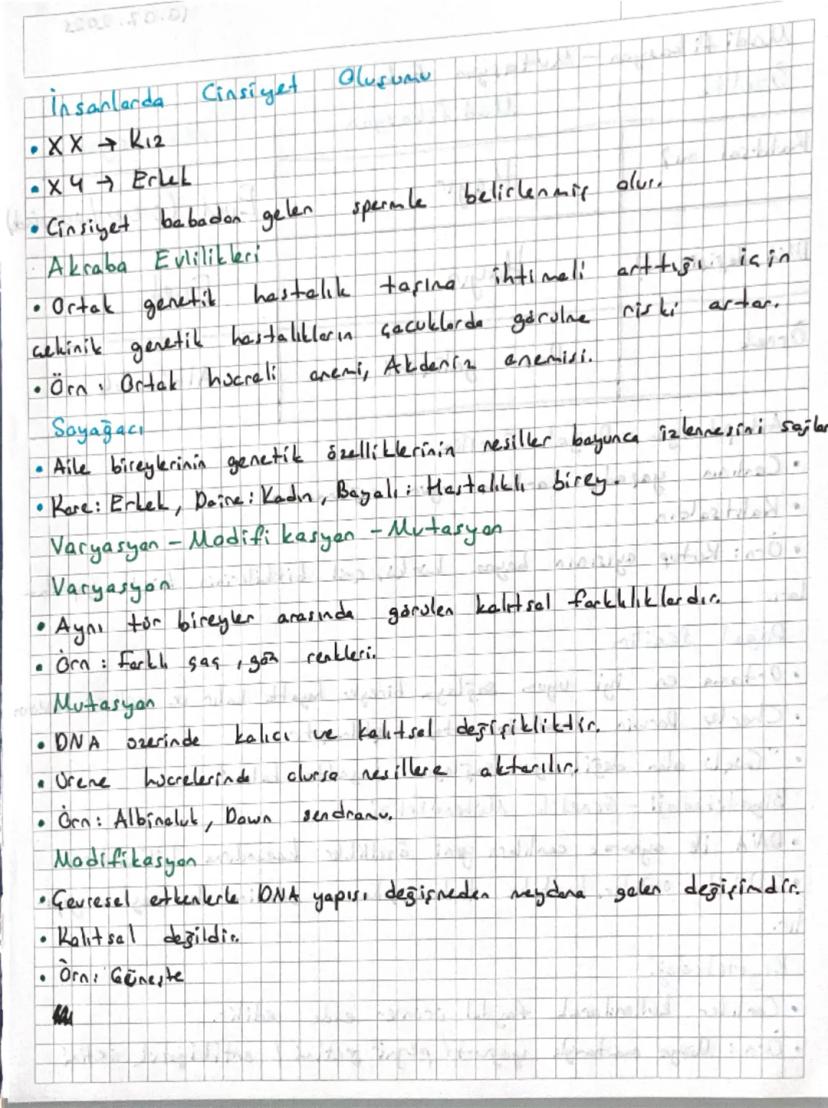 İnsanlarda Cinsiyet Oluşumu
• XX → Kız
• XY → Erkek
• Cinsiyet babadan gelen spermle belirlenmiş olur.
Akraba Evlilikleri
• Ortak genetik hastalık taşıma ihtimali arttığı için
çekinik genetik hastalıkların çocuklarda görülme riski artar.
• Örn: Ortak hücreli anemi, Akdeniz anemisi.
Soyağacı
• Aile bireylerinin genetik özelliklerinin nesiller boyunca izlenmesini sağlar
• Kare: Erkek, Daire: Kadın, Boyalı: Hastalıklı birey.
Varyasyon - Modifikasyon - Mutasyon
Varyasyon
• Aynı tür bireyler arasında görülen kalıtsal farklılıklardır.
• Örn: Farklı saç, göz renkleri.
Mutasyon
• DNA üzerinde kalıcı ve kalıtsal değişikliktir.
• Üreme hücrelerinde olursa nesillere aktarılır.
• Örn: Albinoluk, Down sendromu.
Modifikasyon
• Çevresel etkenlerle DNA yapısı değişmeden meydana gelen değişimdir.
• Kalıtsal değildir.
• Örn: Güneşte